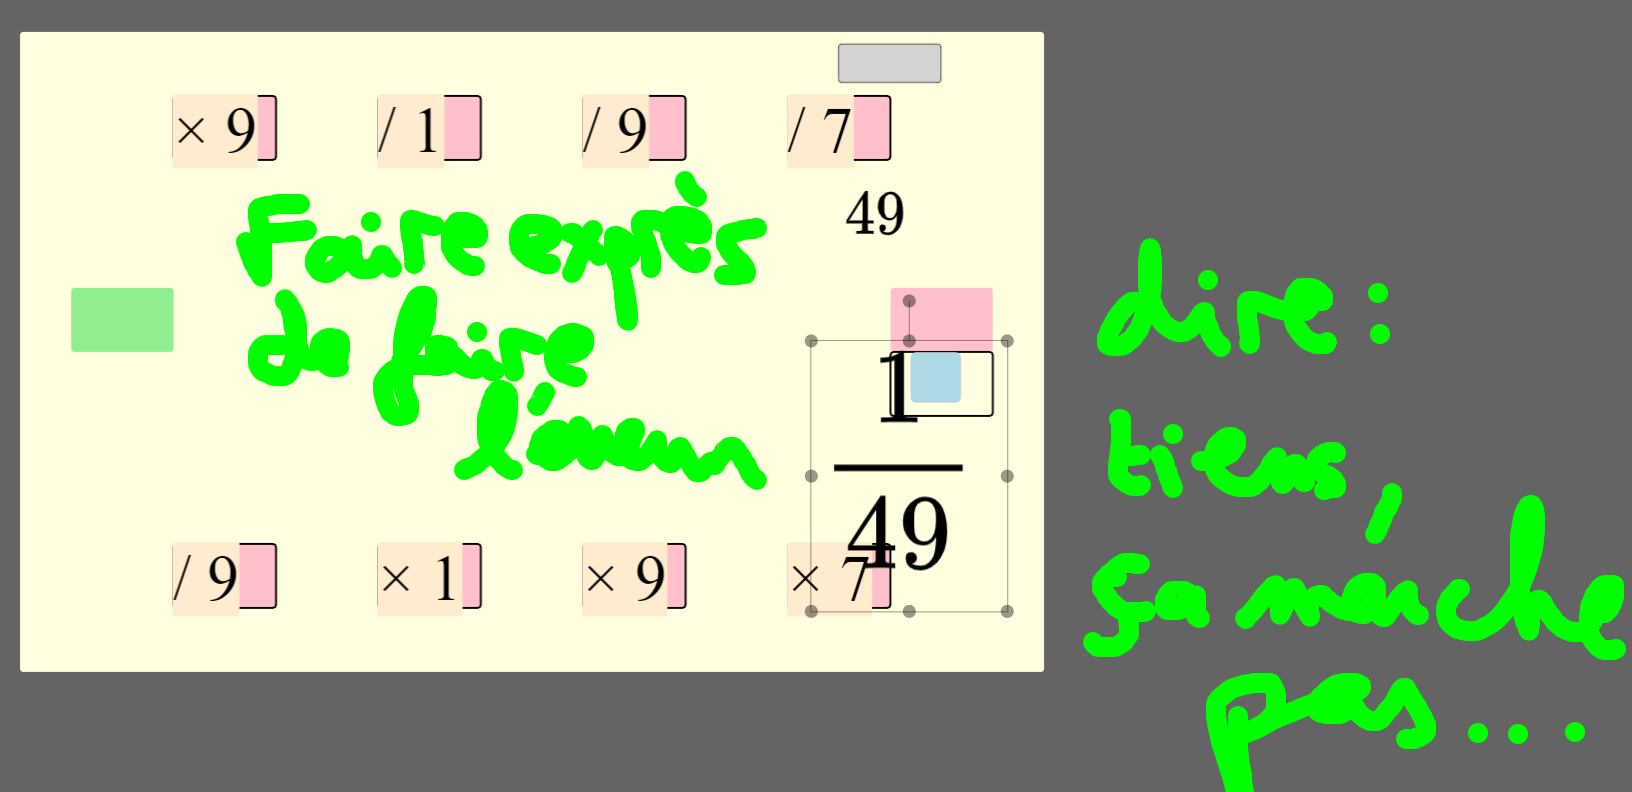 × 9 / 1 / 9 / 7
49
Faire exprès
de faire
1
49
/ 9 × 1 × 9 × 7
dire :
tiens,
ça marche
pas...